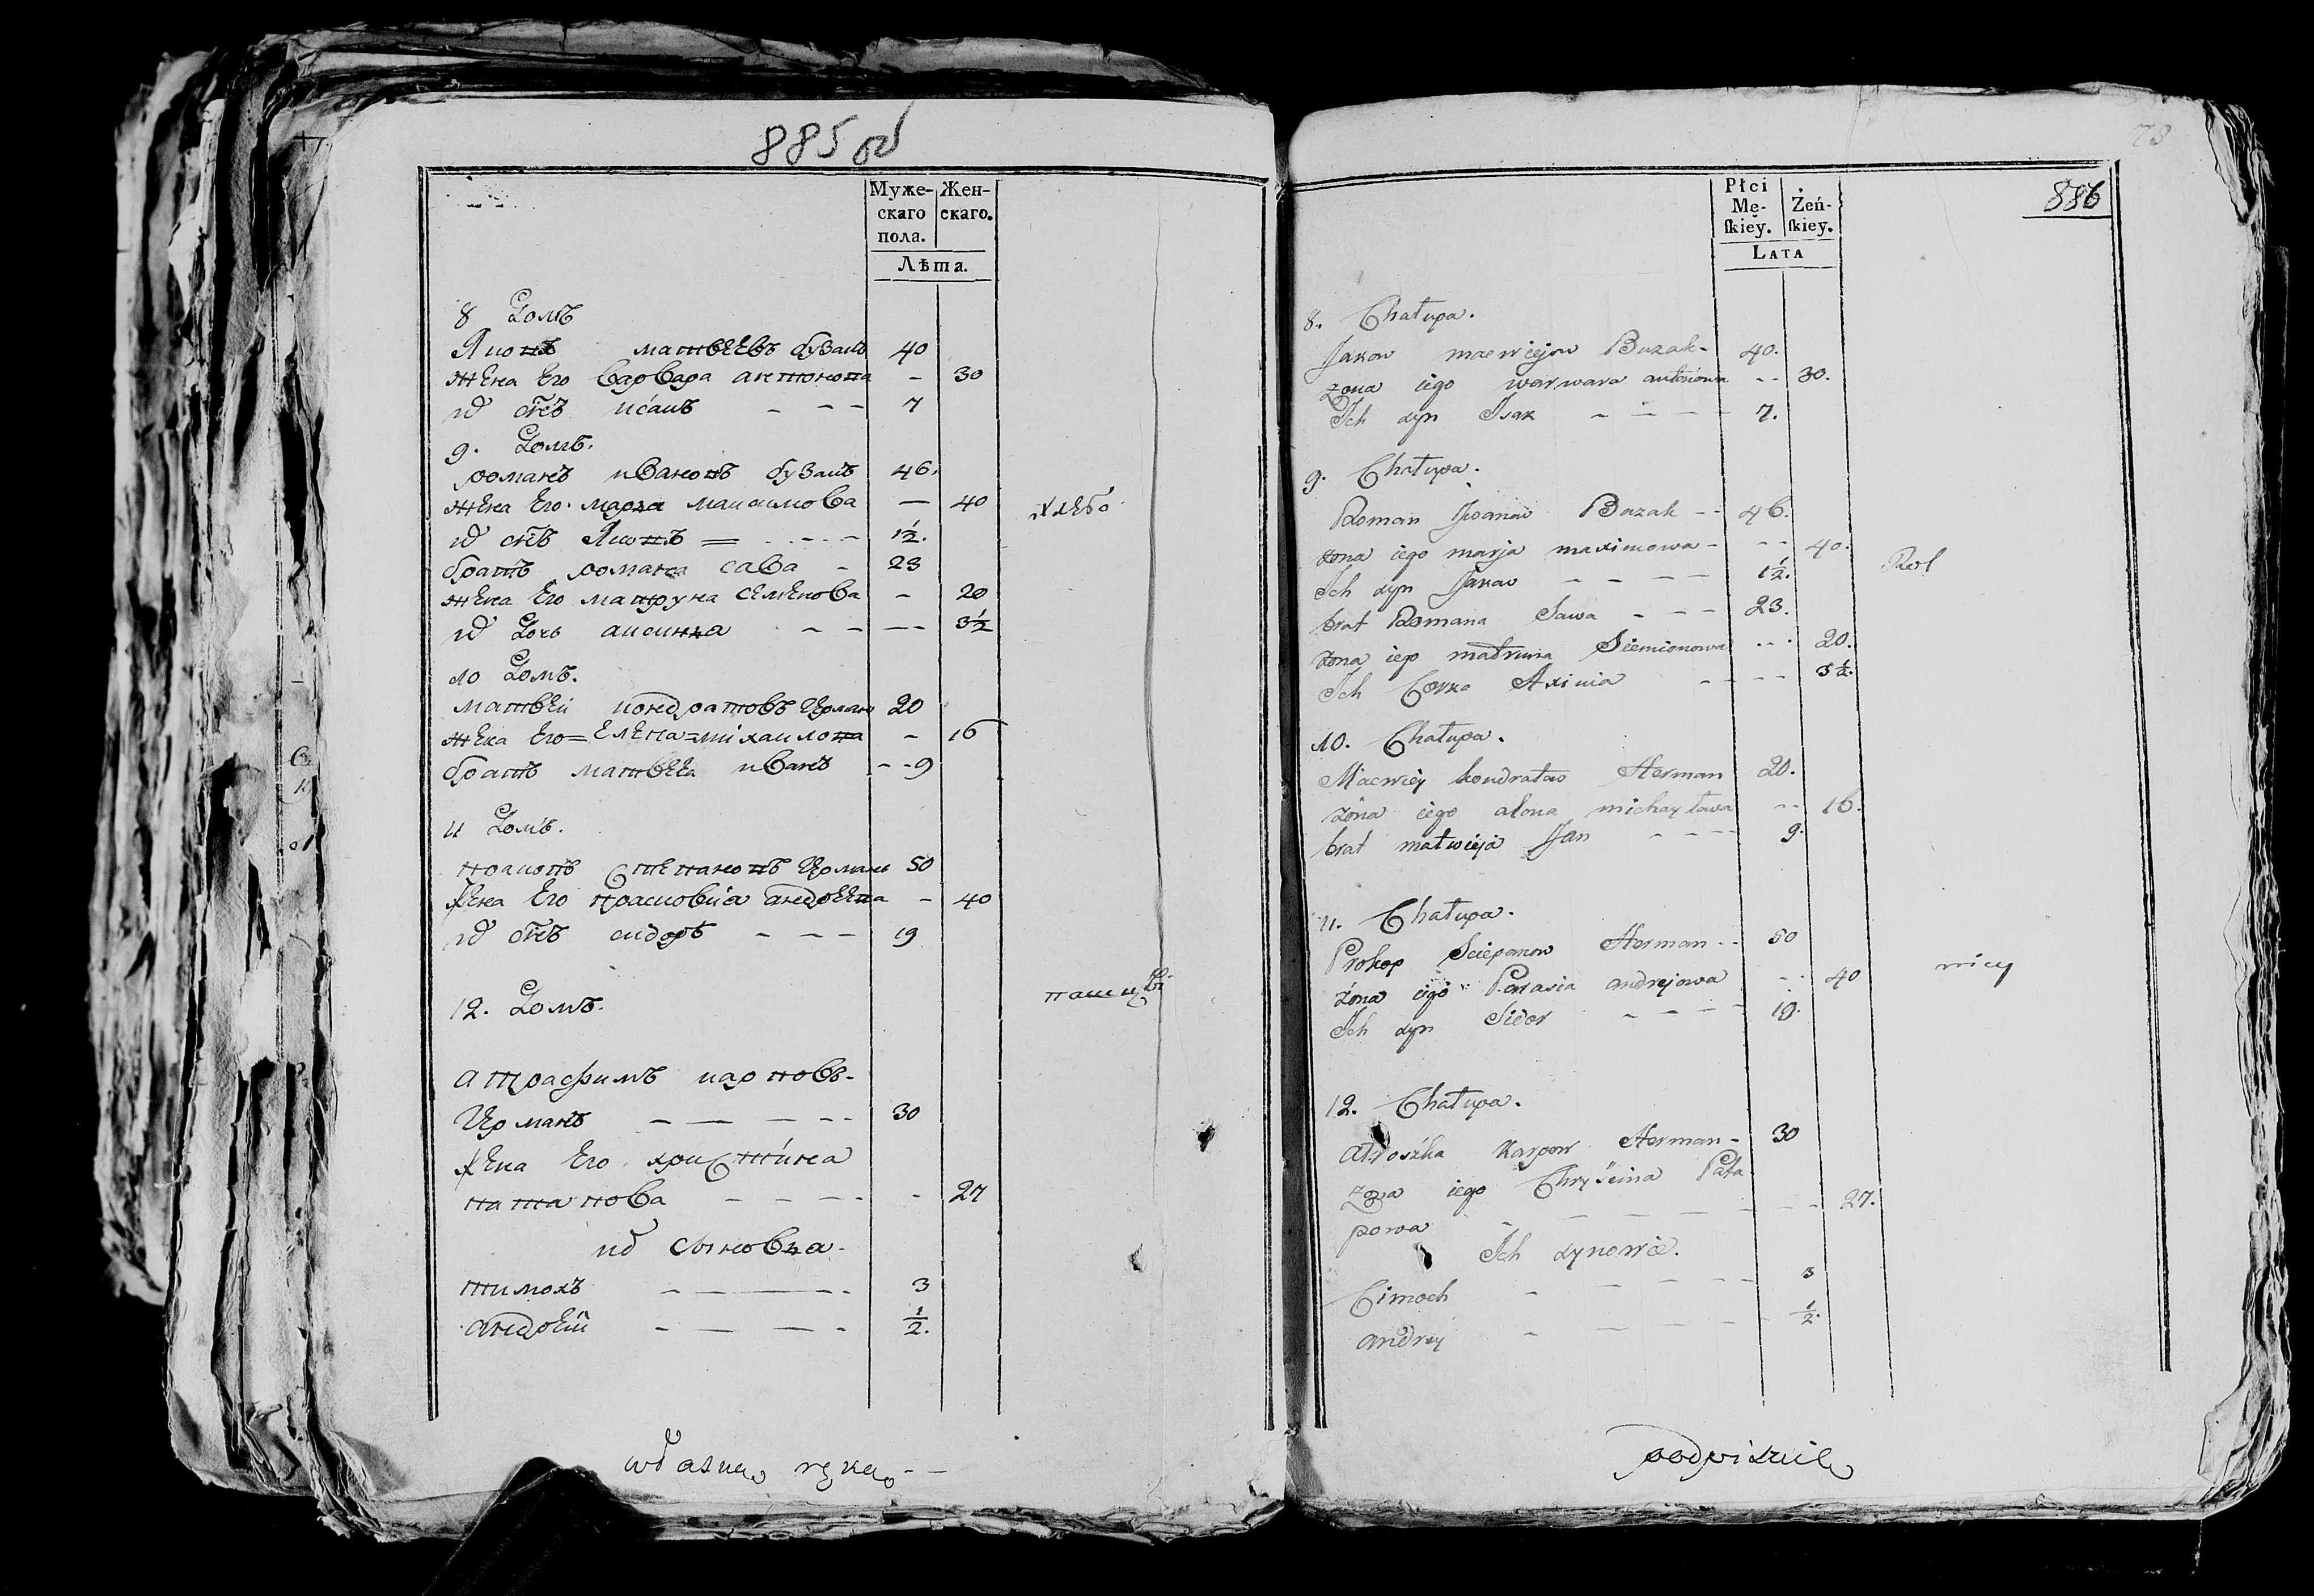 885 об
Муже- Жен-
скаго скаго.
пола.
Лѣта.
8 Домъ
Яковъ матвѣевъ бузакъ 40
жена Его варвара антонова - 30
их сынъ исакъ - - - 7
9. Домъ.
романъ ивановъ бузакъ 46.
жена Его марья максимова - 40 хлебо
их сынъ Яковъ = - - - 1½.
братъ романа сава - 23
жена Его матруна семенова - 20
их дочь аксинья - - - - 3½
10 Домъ.
матвей кондратовъ Ерман 20
жена Его = Елена = михаилова - 16
братъ матвея иванъ - - 9
11 Домъ.
прокопъ степановъ Ерман 50
жена Его прасковiа андреева - 40
их сынъ сидоръ - - - 19
12. Домъ. пашцы
атрафимъ карповъ-
Ерманъ - - - - 30
жена Его христина
патапова - - - - - 27
их сыновья.
тимохъ - - - - 3
андрей - - - - ½.
własną ręką - -
78
886
Płci
Mę- Żeń-
ſkiey. ſkiey.
Lata
8. Chałupa.
Jakow maewiejow Buzak- 40.
żona iego warwara antoniowa - - 30.
Ich syn Isak - - - - 7.
9. Chałupa.
Roman Iwanow Buzak - - 46.
żona iego marja maximowa - - - 40.
Ich syn Jakow - - - - 1½. Rol
brat Romana Sawa - - - 23.
żona iego matruna Siemionowa - - 20.
Ich Corka Axinia - - - - 3½.
10. Chałupa.
Maewiey kondratow Herman 20.
żona iego alona michayłowa - - 16.
brat matwieja Jan - - - - 9.
11. Chałupa.
Prokop Sciepanow Herman - - 50
żona iego Parasia andrejowa - - 40 nicy
Ich syn Sidor - - - - 19.
12. Chałupa.
Atroszka Karpow Herman - 30
żona iego Chryscina Pata
powa - - - - - - - 27.
Ich synowie.
Cimoch - - - - - 3
andrey - - - - - ½.
podpisuie